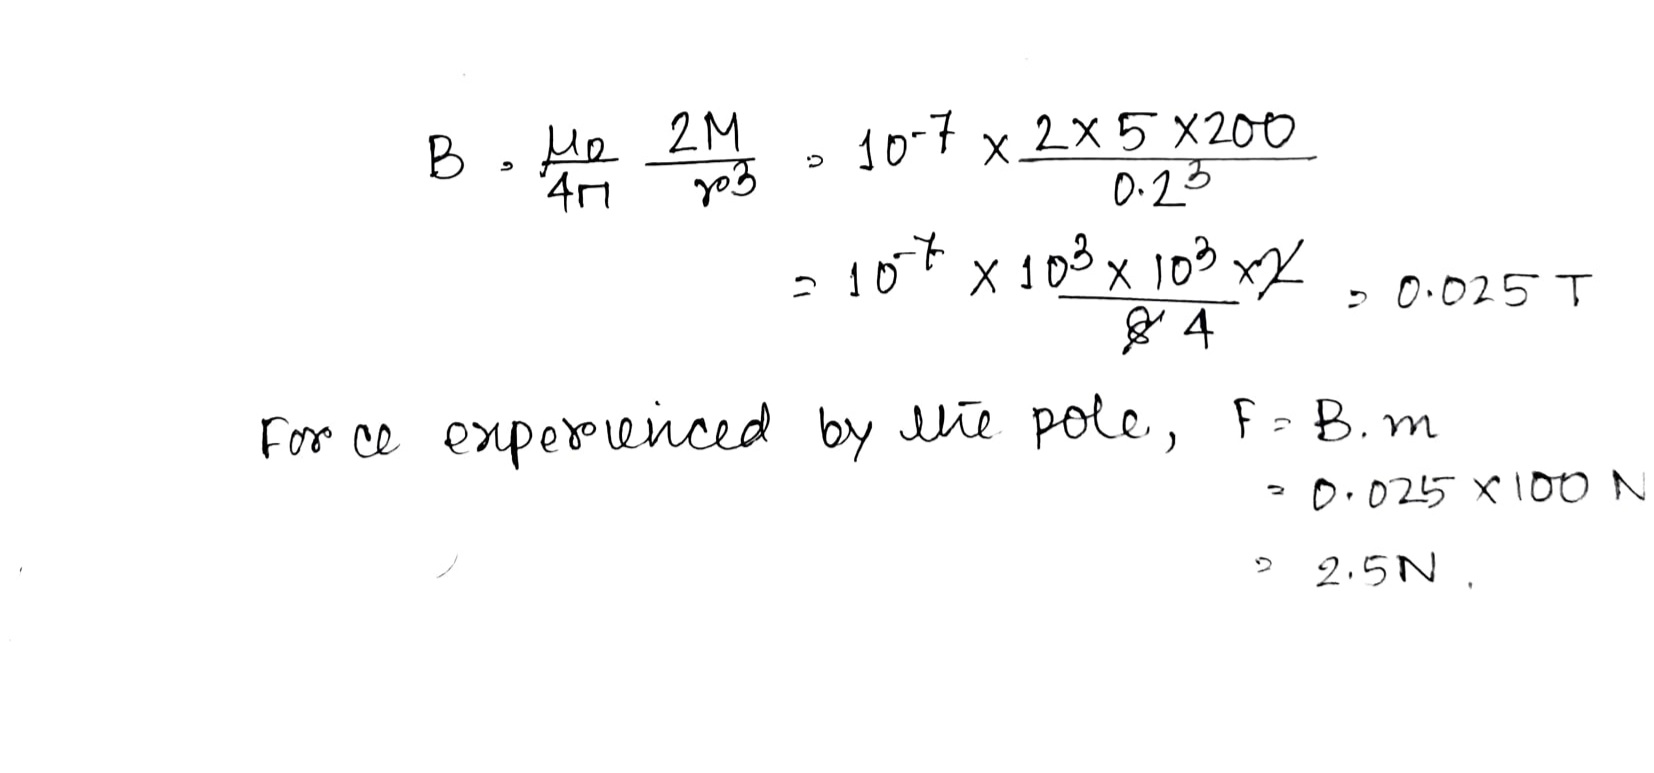 B = μ0/4π 2M/r3 = 10-7 × 2×5×200/0.23
= 10-7 × 103 × 103 ×2/8 4 = 0.025 T
Force experienced by the pole, F = B.m
= 0.025 ×100 N
= 2.5N.